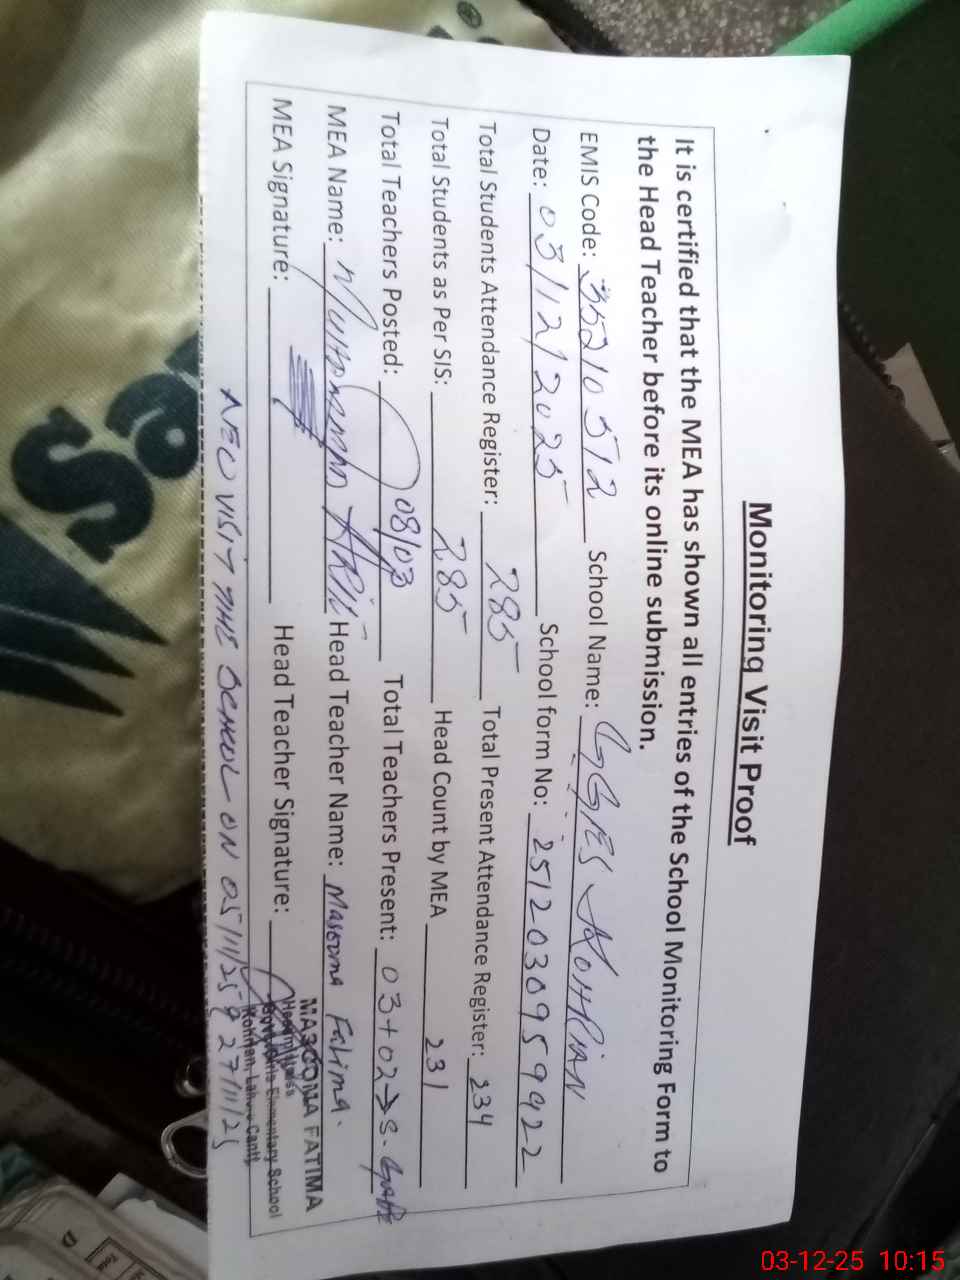 Monitoring Visit Proof
It is certified that the MEA has shown all entries of the School Monitoring Form to
the Head Teacher before its online submission.
EMIS Code: 35210512 School Name: GGES KOHRIAN
Date: 03/12/2025 School form No: 2512030959922
Total Students Attendance Register: 285 Total Present Attendance Register: 234
Total Students as Per SIS: 285 Head Count by MEA 231
Total Teachers Posted: 08/03 Total Teachers Present: 03+02→S.
MEA Name: Muhammad Head Teacher Name: Masooma Fatima.
MEA Signature: Head Teacher Signature:
MASOOMA FATIMA
Headmistress
Govt. Girls Elementary School
Lahore Cantt
AEO VISIT THE SCHOOL ON 05/11/25 & 27/11/25
03-12-25 10:15